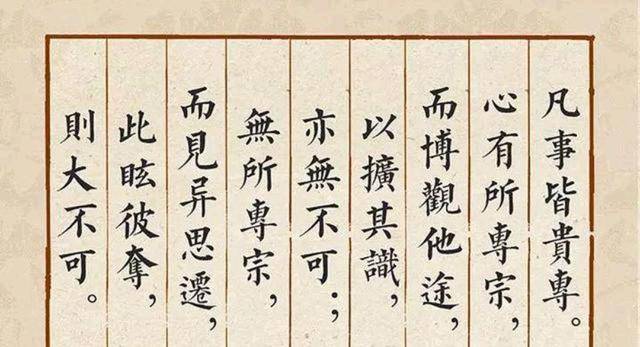 凡事皆貴專。
心有所專宗，
而博觀他途，
以擴其識，
亦無不可；
無所專宗，
而見异思遷，
此眩彼奪，
則大不可。